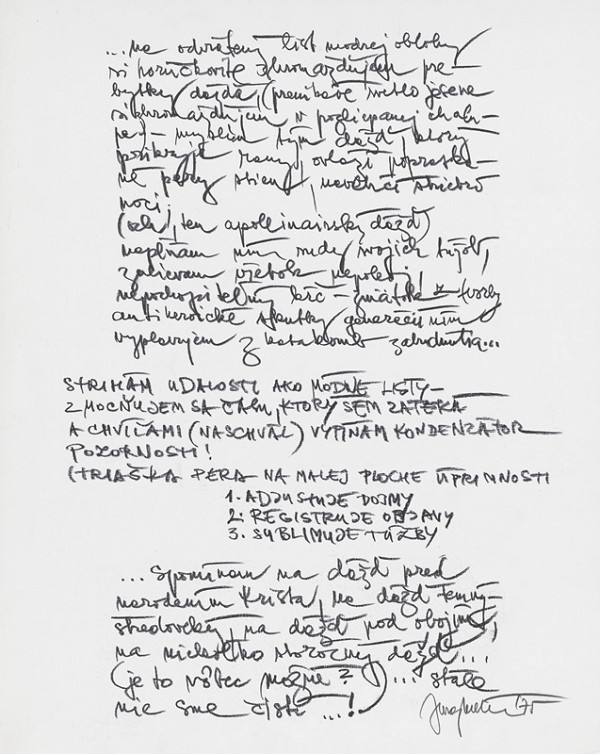 ...na odvrátený list modrej oblohy
si ponúčkovite zhromažďujem pre-
bytky (dažďa, (prenikavé svetlo jesene
si zhromažďujem v pozliepanej chalu-
pe) — myslím tým dážď, ktorý
prikryje rany, ovlaží popraska-
né pery stien, navlhčí striebro
noci.
(och, ten apollinairský dážď)
napĺňam ním sudy svojich túžob,
zalievam všetok nepokoj,
nepochopiteľný bič — zmätok — tvorby
antiheroické skutky generácií ním
vyplavujem z katakomb zabudnutia...
STRIHÁM UDALOSTI AKO MÓDNE LISTY —
ZMOCŇUJEM SA ČASU, KTORÝ SEM ZATEKÁ
A CHVÍĽAMI (NASCHVÁL) VYPÍNAM KONDENZÁTOR
POZORNOSTI!
(TRIAŠKA PERA NA MALEJ PLOCHE ÚPRIMNOSTI
1. ADJUSTUJE DOJMY
2. REGISTRUJE OBJAVY
3. SUBLIMUJE TÚŽBY
...Spomínam na dážď pred
narodením Krista, na dážď temný —
stredoveký, na dážď pod obojím,
na niekoľko storočný dážď...
(je to vôbec možné?) ... stále
nie sme čistí ...!